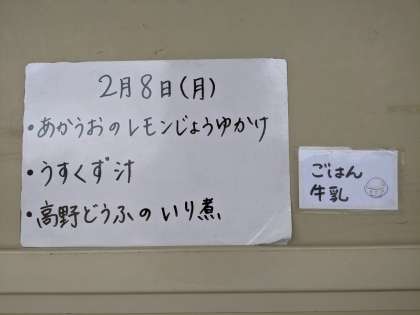 2月8日(月)
・あかうおのレモンじょうゆかけ
・うすくず汁
・高野どうふのいり煮
ごはん
牛乳